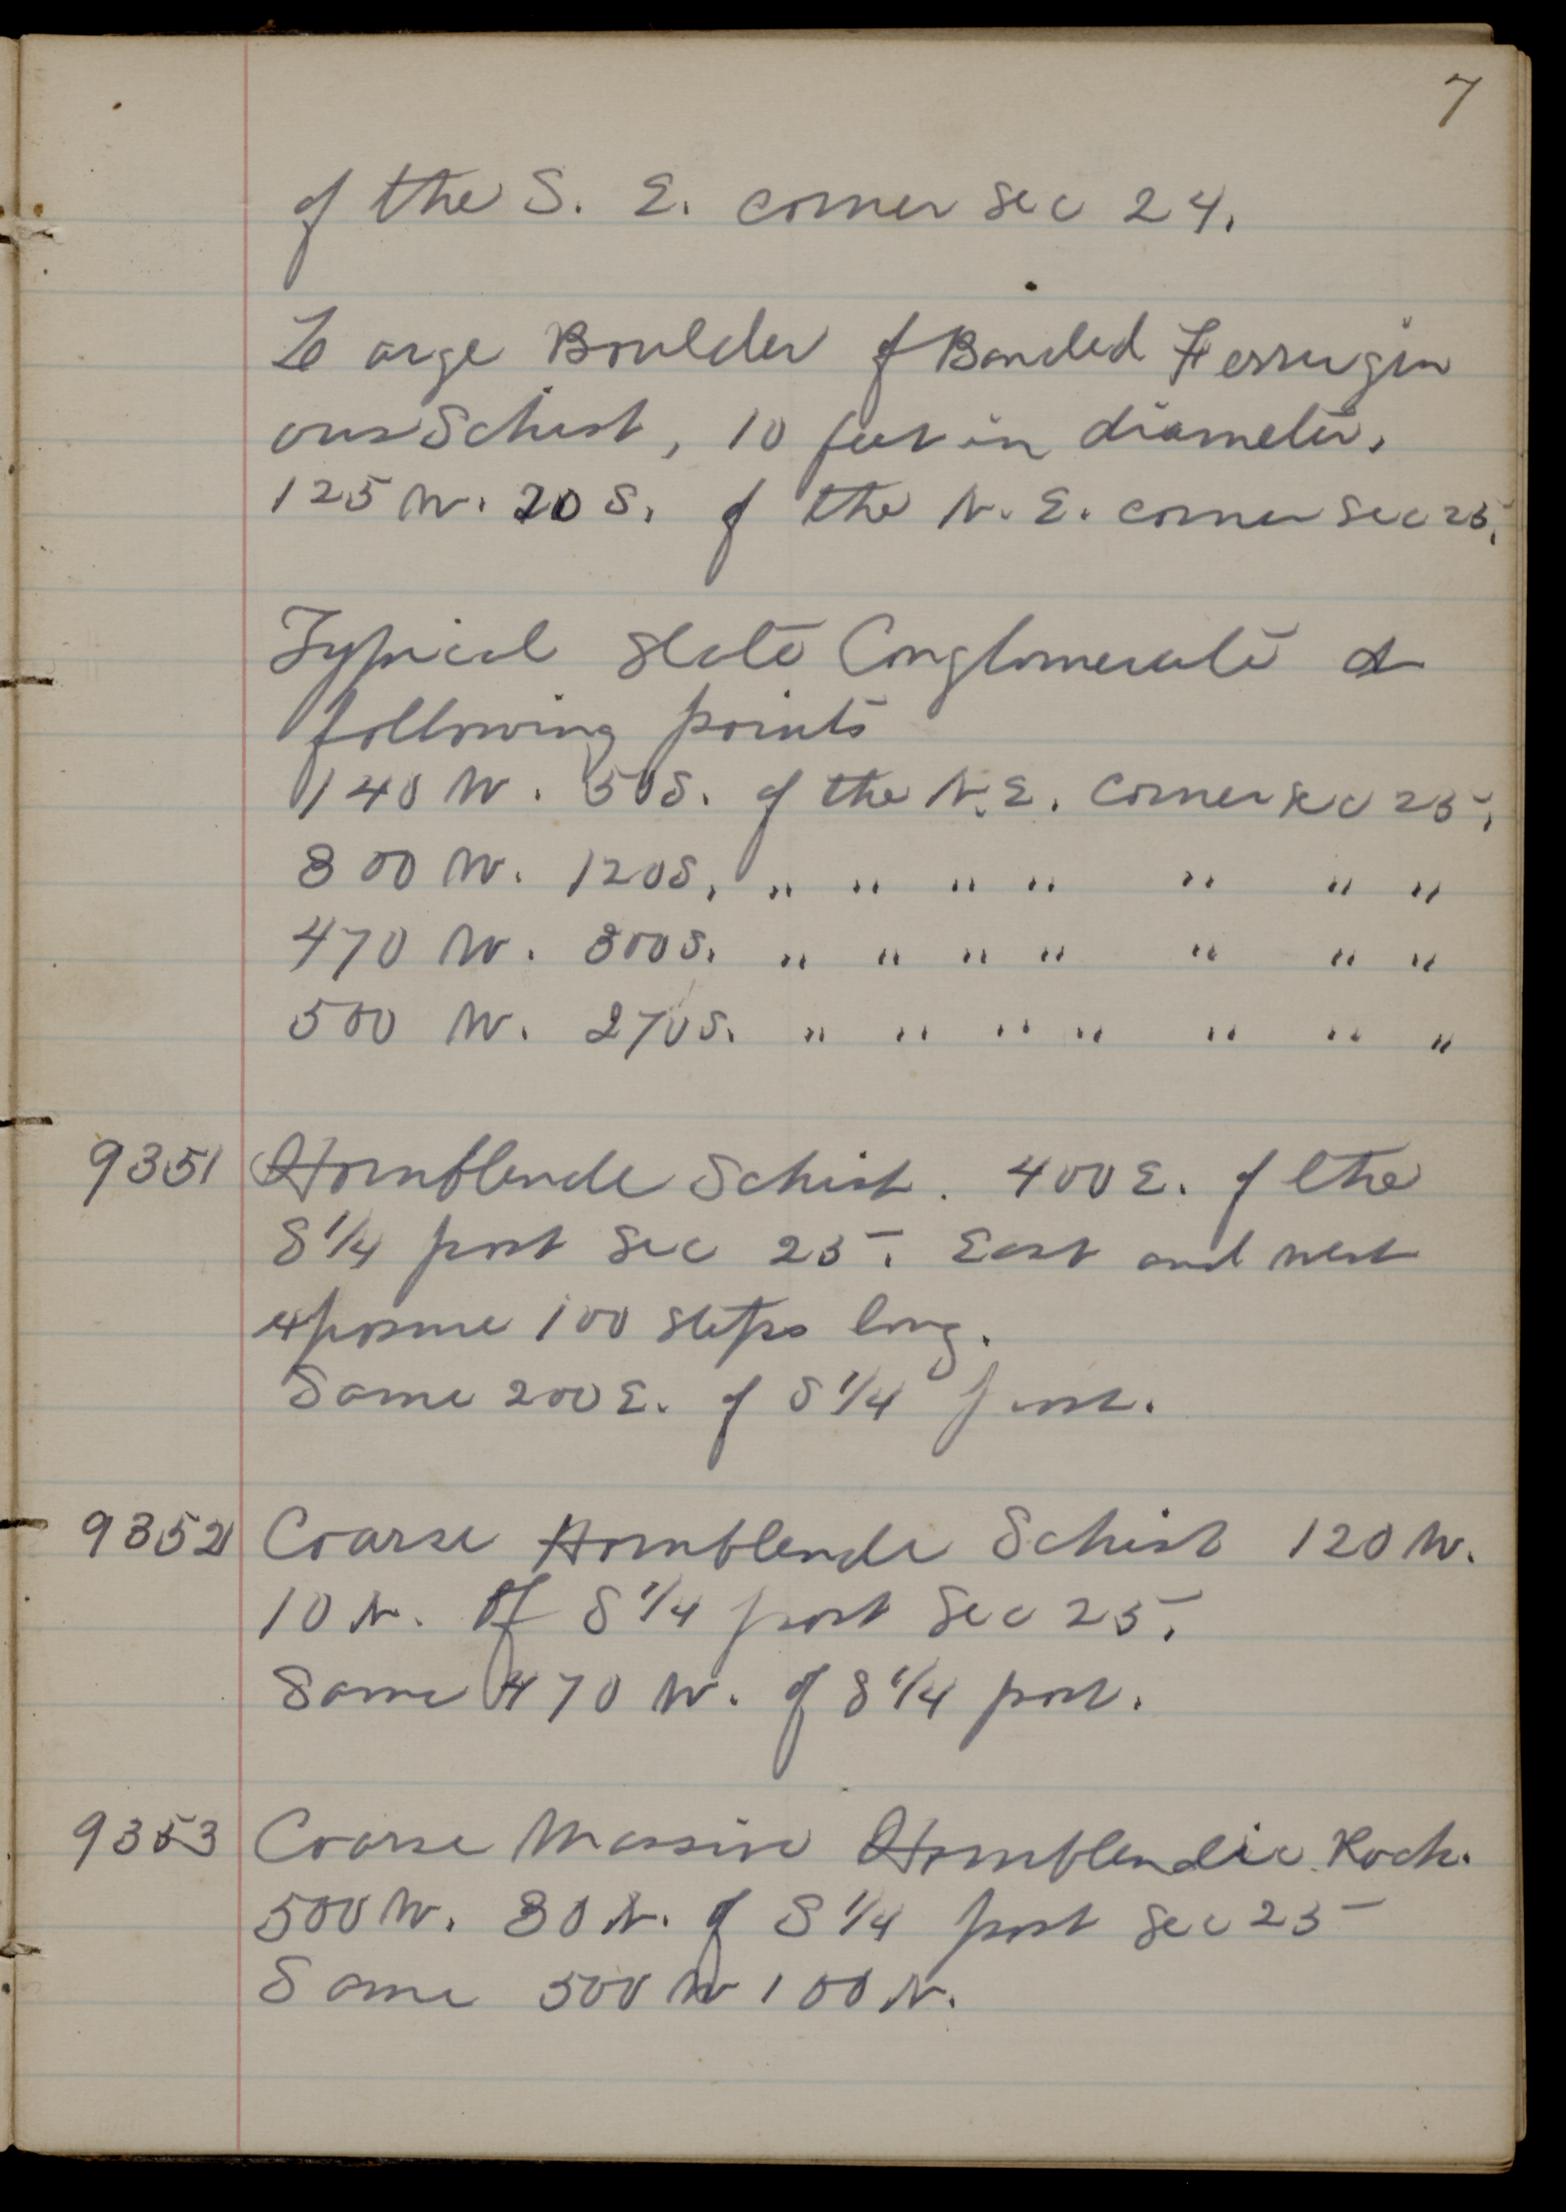 7
of the S. E. corner Sec 24.
Large Boulder of Banded Ferrugin
ous Schist, 10 feet in diameter.
125 W. 20 S. of the N. E. corner Sec 25.
Typical Slate Conglomerate at
following points
140 W. 50 S. of the N. E. Corner Sec 25.
300 W. 120 S. " " " " " " "
470 W. 300 S. " " " " " " "
500 W. 270 S. " " " " " " "
9351 Hornblende Schist. 400 E. of the
S 1/4 post Sec 25. East and west
exposure 100 steps long.
Same 200 E. of S 1/4 post.
9352 Coarse Hornblende Schist 120 W.
10 N. of S 1/4 post Sec 25.
Same 470 W. of S 1/4 post.
9353 Coarse Massive Hornblendic Rock.
500 W. 30 N. of S 1/4 post Sec 25
Same 500 W 100 N.